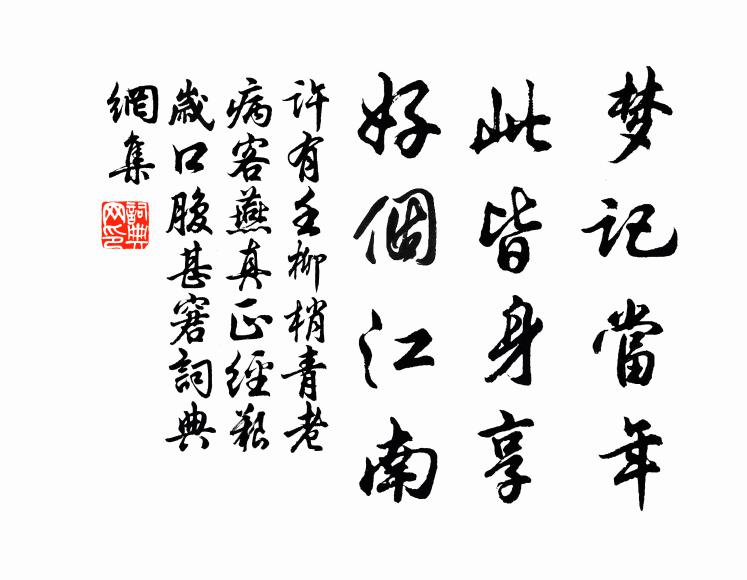 梦记當年
此皆身享
好個江南
許有壬柳梢青老
病客燕真正經艱
歲口腹甚窘詞典
網集
詞典
网印